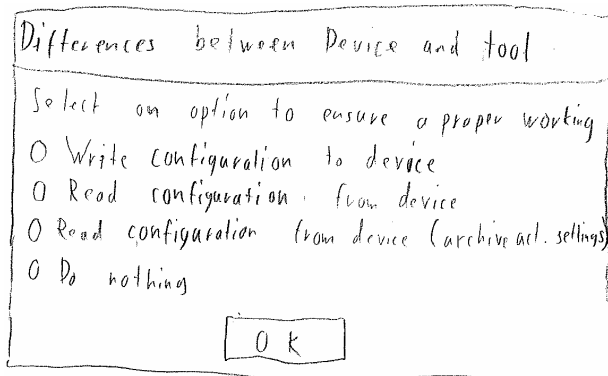 Differences between Device and tool
Select on option to ensure a proper working
O Write configuration to device
O Read configuration from device
O Read configuration from device (archive act. settings)
O Do nothing
OK